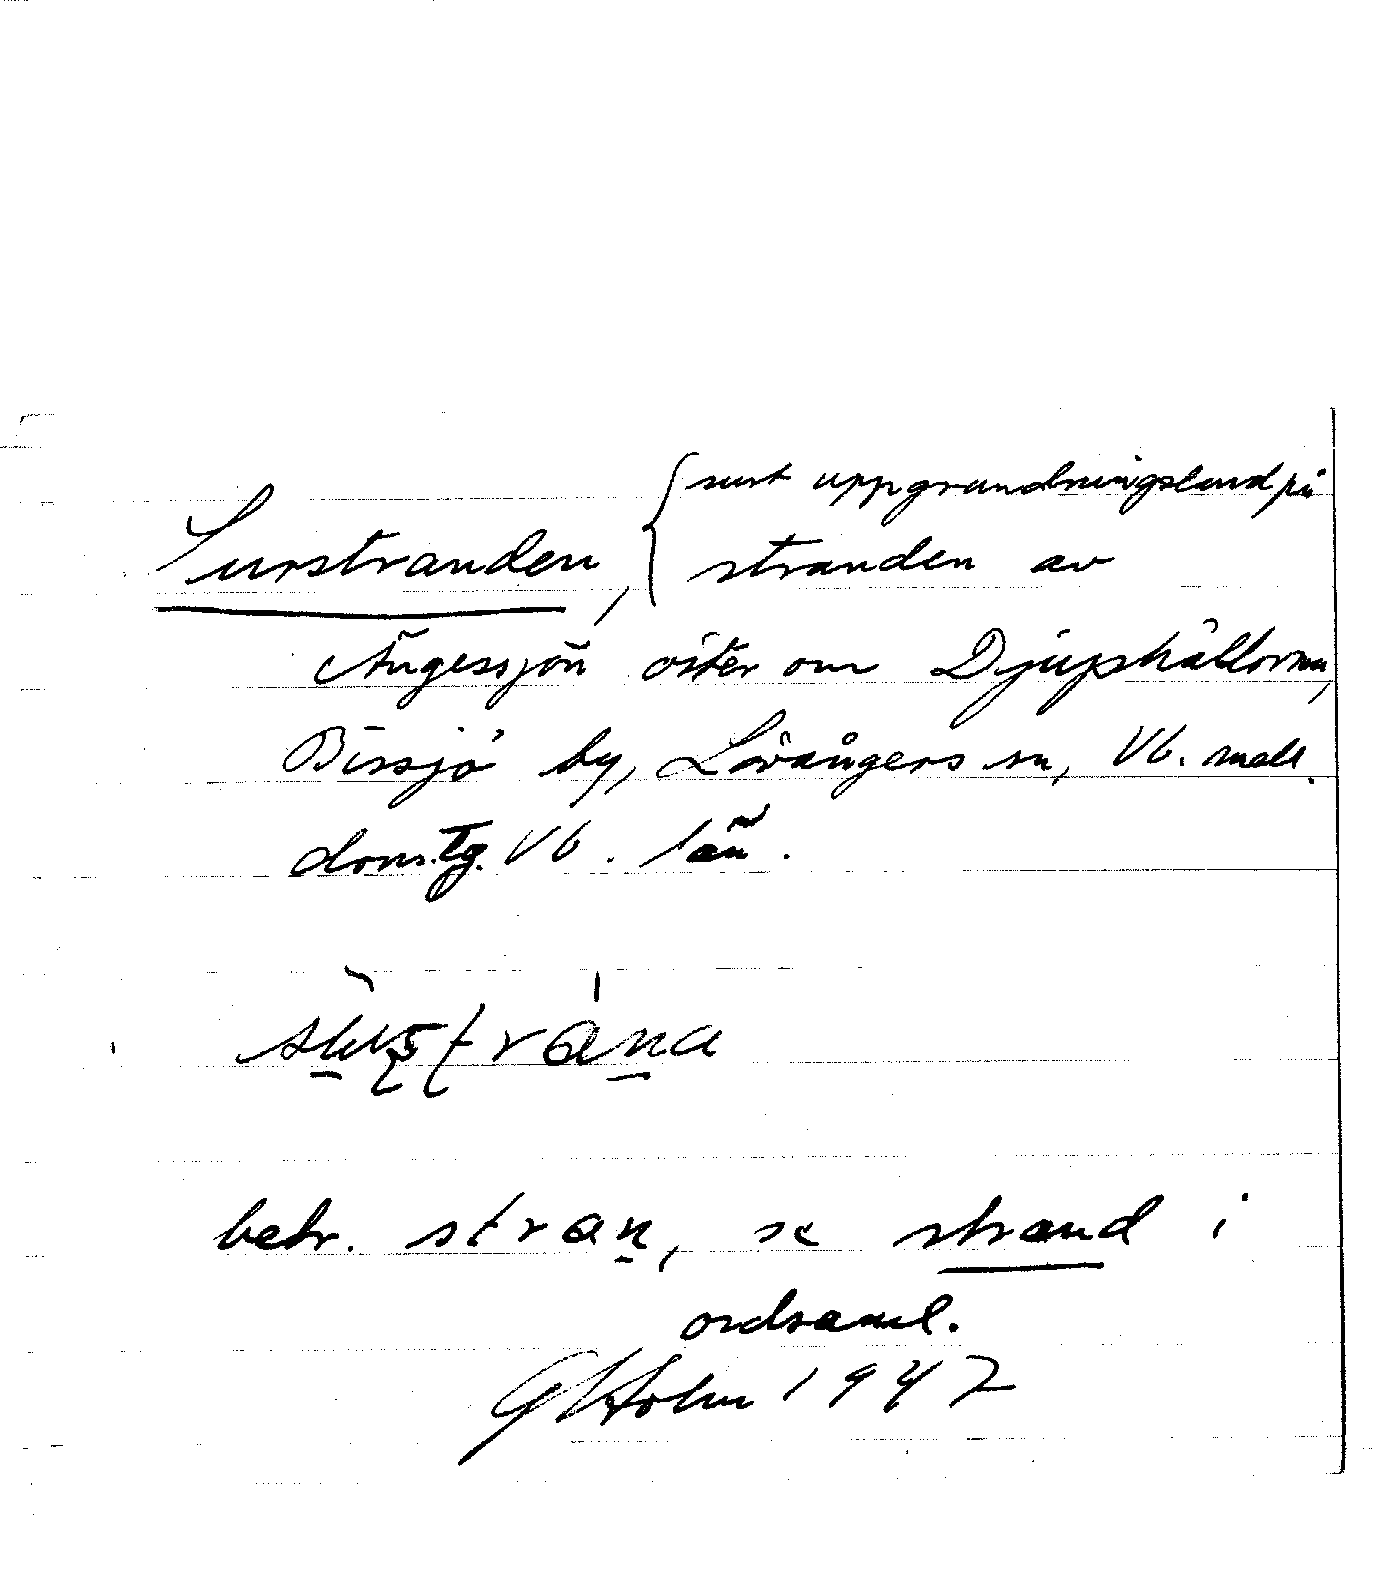 Surstranden, { surt uppgrundningsland på
stranden av
Ångessjön öster om Djuphällorna,
Bissjö by, Lövångers sn, Vb. mell.
doms.tg. Vb. län.
betr. stran, se strand i
ordsaml.
G Holm 1947